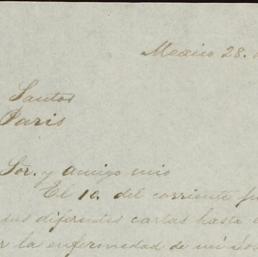 Mexico 28.
Santos
Paris
Sor. y amigo mio
El 10. del corriente
sus diferentes cartas hasta
la enfermedad de mi